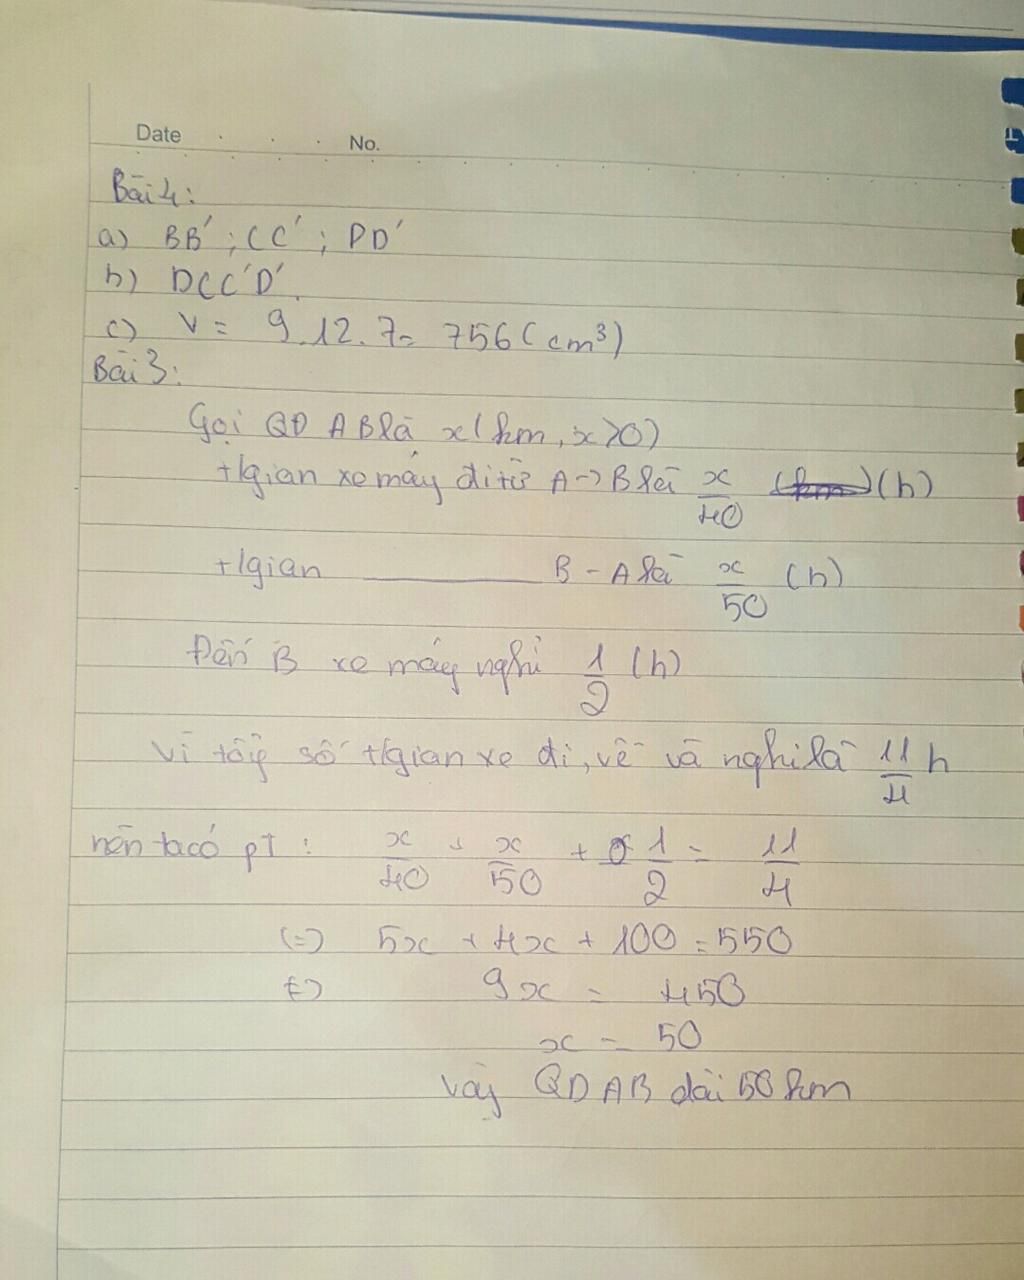 Date . . . No.
Bài 4:
a) BB' ; CC' ; DD'
b) DCC'D'.
c) V = 9.12.7 = 756 (cm³)
Bài 3:
Gọi QĐ AB là x (km, x>0)
t/gian xe máy đi từ A -> B là x/40 (h)
t/gian ________ B - A là x/50 (h)
Đến B xe máy nghỉ 1/2 (h)
Vì tổng số t/gian xe đi, về và nghỉ là 11/4 h
nên ta có pT : x/40 + x/50 + 1/2 = 11/4
(=) 5x + 4x + 100 = 550
(=) 9x = 450
x = 50
Vậy QĐ AB dài 50 km